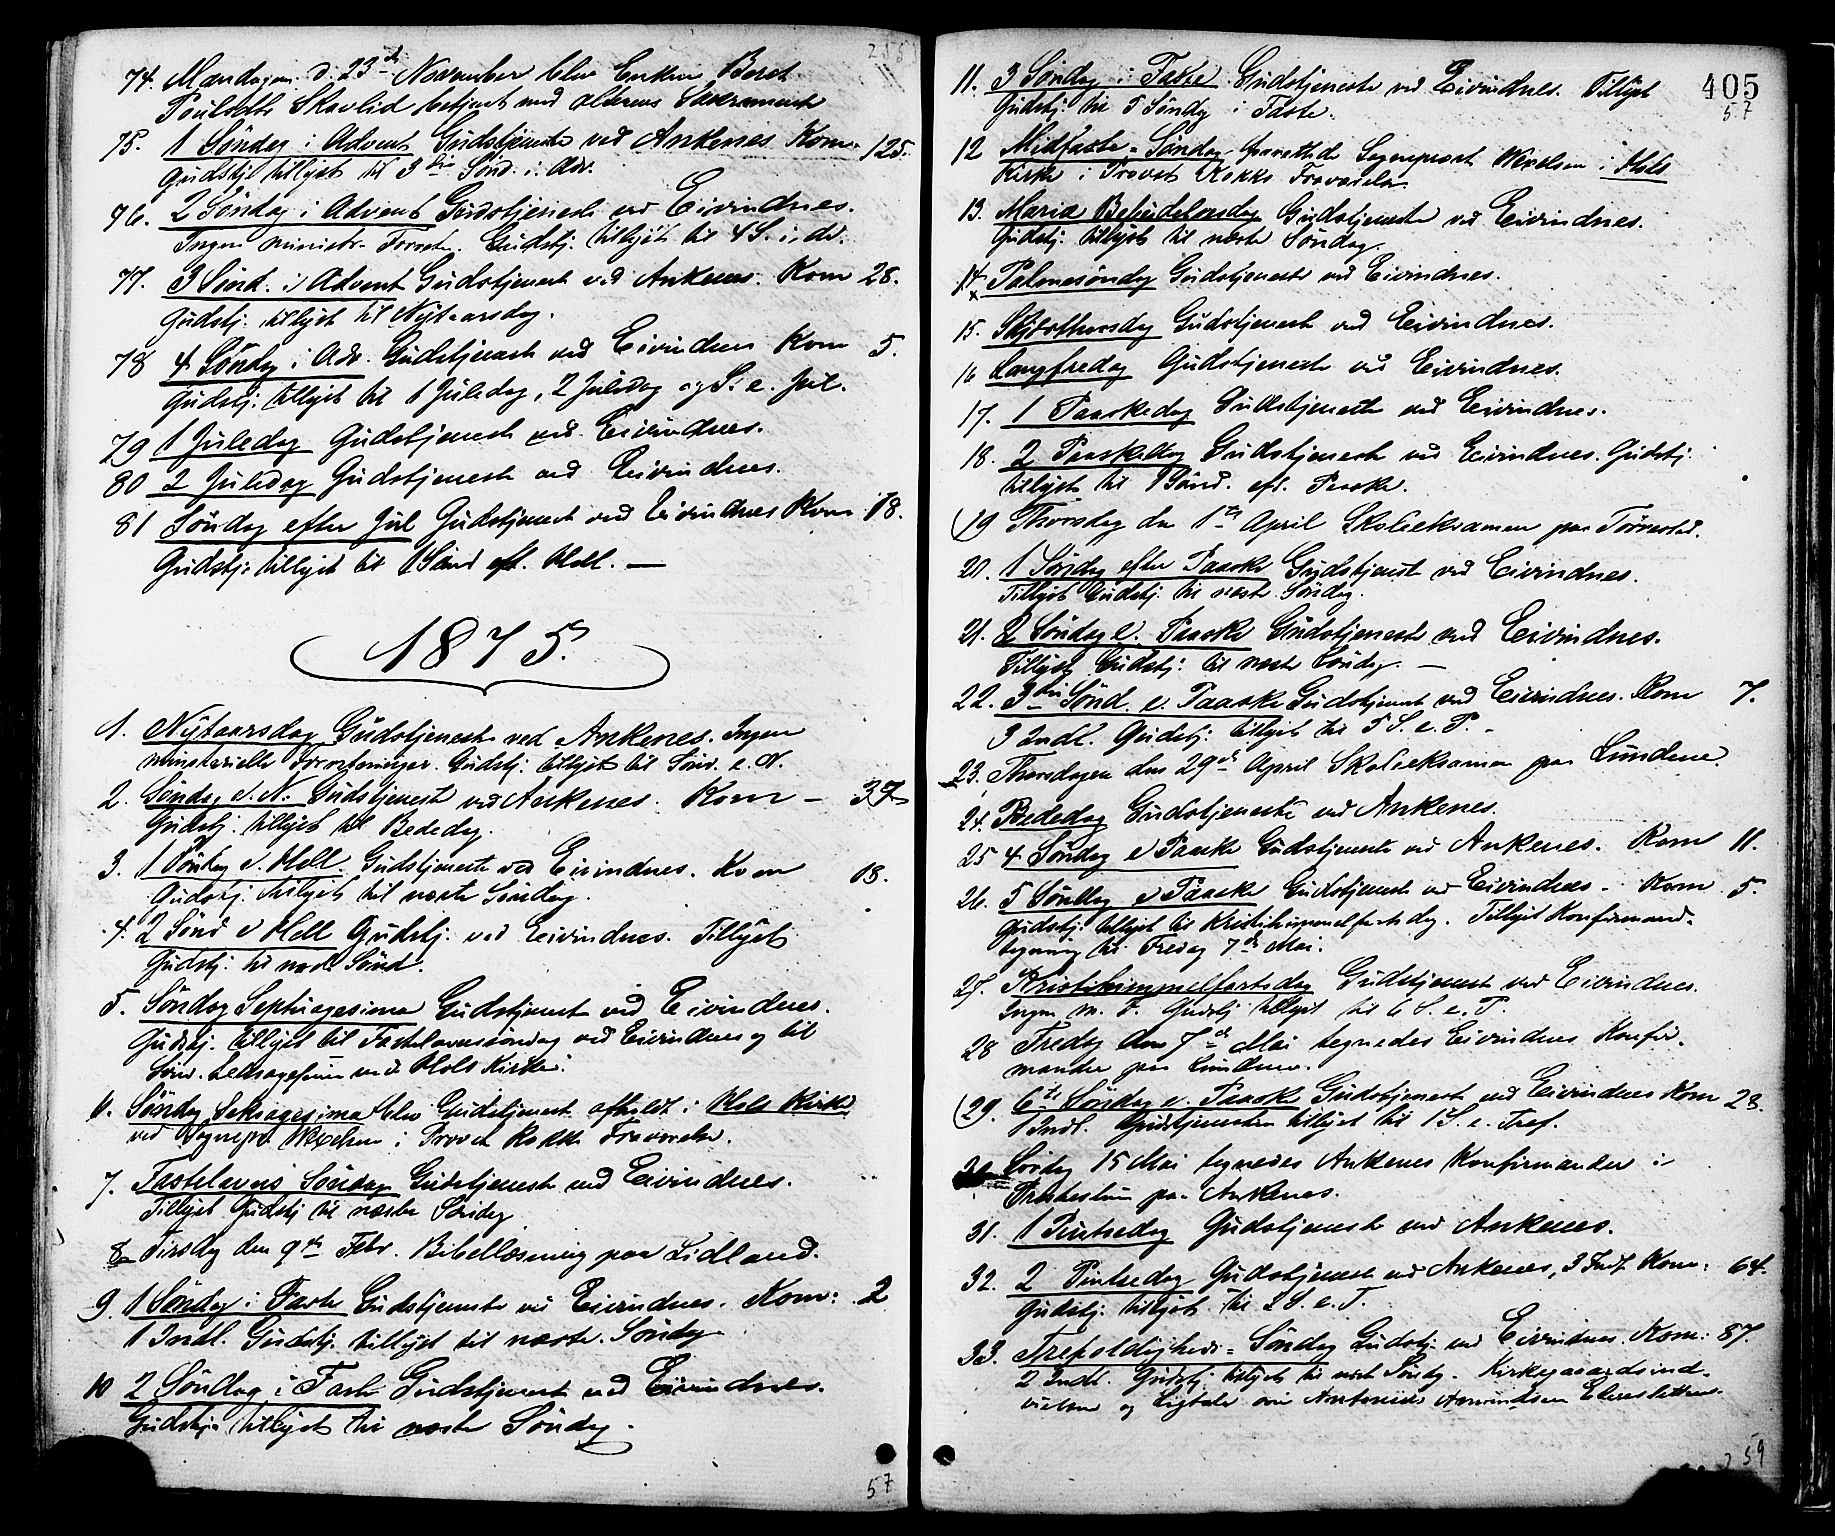 74. Mandagen d. 23de November blev Enken Beret
Poulsdtr Skavlid betjent med alterens Sacramente
75. 1 Søndag i Advent Gudstjeneste ved Ankenes. Kom. 125.
Gudstj. tillyst til 3die Sønd. i Adv.
76. 2 Søndag i Advent Gudstjeneste ved Eivindnes.
Ingen ministr. Forretn. Gudstj. tillyst til 4 S. i Adv.
77. 3 Sønd. i Advent Gudstjenest ved Ankenes. Kom 28.
Gudstj. tillyst til Nytaarsdag.
78 4 Søndag i Adv. Gudstjenest ved Eivindnes Kom 5.
Gudstj. tillyst til 1 Juledag, 2 Juledag og S. e. Jul.
79 1 Juledag Gudstjenest ved Eivindnes.
80 2 Juledag Gudstjenest ved Eivindnes.
81 Søndag efter Jul Gudstjenest ved Eivindnes Kom 18.
Gudstj. tillyst til 1 Sønd eft. Hell. —
1875.
1. Nytaarsdag Gudstjenest ved Ankenes. Ingen
ministerielle Forretninger. Gudstj. tillyst til Sønd. e. N.
2. Søndag e. N. Gudstjeneste ved Ankenes. Kom – 37
Gudstj. tillyst til Bededag.
3. 1 Søndag e. Hell. Gudstjeneste ved Eivindnes. Kom 18.
Gudstj. tillyst til næste Søndag.
4. 2 Sønd e Hell Gudstj. ved Eivindnes. Tillyst
Gudstj. til næste Sønd.
5. Søndag Septuagesima Gudstjenest ved Eivindnes.
Gudstj. tillyst til Fastelavnssøndag ved Eivindnes og til
Sønd. Seksagesima ved Hols Kirke.
6. Søndag Seksagesima blev Gudstjenest afholdt i Hols Kirke
ved Sognepr Wexelsen i Provst Kokks Fraværelse.
7. Fastelavns Søndag Gudstjenest ved Eivindnes.
Tillyst Gudstj til næste Søndag
8 Tirsdag den 9de Febr. Bibellæsning paa Lidland.
9. 1 Søndag i Faste Gudstjeneste ved Eivindnes. Kom: 2
1 Indl. Gudstj. tillyst til næste Søndag
10 2 Søndag i Faste Gudstjenest ved Eivindnes.
Gudstj. tillyst til næste Søndag.
57
405
57
11. 3 Søndag i Faste Gudstjeneste ved Eivindnes. Tillyst
Gudstj. til 5 Søndag i Faste.
12 Midfaste-Søndag forrettede Sognepræst Wexelsen i Hols
Kirke i Provst Kokks Fraværelse
13. Mariæ Bebudelsesdag Gudstjeneste ved Eivindnes.
Gudstj. tillyst til næste Søndag.
14 Palmesøndag Gudstjeneste ved Eivindnes.
15. Skjærthorsdag Gudstjenest ved Eivindnes.
16 Langfredag Gudstjenest ved Eivindnes.
17. 1 Paaskedag Gudstjeneste ved Eivindnes.
18. 2 Paaskedag Gudstjenest ved Eivindnes. Gudstj.
tillyst til 1 Sønd. eft. Paaske.
19 Thorsdag den 1ste April Skoleeksamen paa Tørrestad.
20. 1 Søndag efter Paaske Gudstjenest ved Eivindnes.
Tillyst Gudstj. til næste Søndag.
21. 2 Søndag e. Paaske Gudstjeneste ved Eivindnes.
Tillyst Gudstj. til næste Søndag. —
22. 3die Sønd. e. Paaske Gudstjenest ved Eivindnes. Kom 7.
3 Indl. Gudstj. tillyst til 5 S. e. P. –
23. Thorsdagen den 29de April Skoleeksamen paa Lundene.
24. Bededag Gudstjeneste ved Ankenes.
25 4 Søndag e Paaske Gudstjeneste ved Ankenes. Kom 11.
26. 5 Søndag e Paaske Gudstjenest ved Eivindnes – Kom 5.
Gudstj. tillyst til Kristihimmelfartsdag. Tillyst Konfirmand-
tegning til Fredag 7de Mai.
27. Kristihimmelfartsdag Gudstjenest ved Eivindnes.
Ingen m. F. Gudstj tillyst til 6 S. e. P.
28 Fredag den 7de Mai tegnedes Eivindnes Konfir-
mander paa Lundene.
29. 6te Søndag e. Paaske Gudstjenest ved Eivindnes Kom 23.
1 Indl. Gudstjenesten tillyst til 1 S. e. Tref.
30 Lørdag 15 Mai tegnedes Ankenes Konfirmander i
Præstestuen paa Ankenes.
31. 1 Pintsedag Gudstjeneste ved Ankenes.
32. 2 Pintsedag Gudstjenest ved Ankenes, 3 Indl Kom: 64.
Gudstj. tillyst til 2 S. e. T.
33. Trefoldigheds-Søndag Gudstj. ved Eivindnes Kom: 87.
2 Indl. Gudstj. tillyst til næste Søndag. Kirkegaardsind-
vielse og Ligtale over Amundsen
59